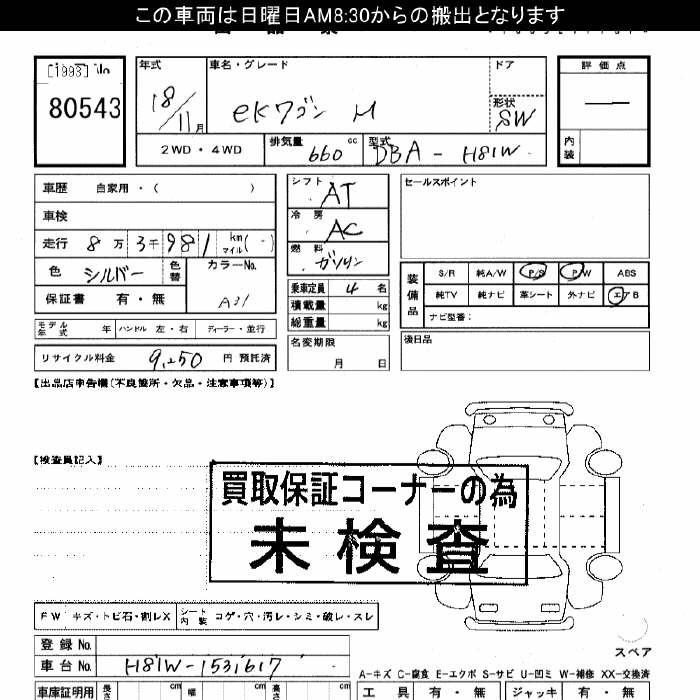 この車両は日曜日AM8:30からの搬出となります
[1993] No
80543
年式 18/11月
車名・グレード eKワゴン M
ドア
形状 SW
2WD・4WD
排気量 660 cc
型式 DBA-H81W
評価点
―
内装
車歴 自家用・( )
車検
走行 8万3千981 km マイル(-)
色 シルバー 色替
カラーNo. A31
保証書 有・無
モデル年式 年 ハンドル 左・右 ディーラー・並行
リサイクル料金 9,250 円 預託済
シフト AT
冷房 AC
燃料 ガソリン
乗車定員 4 名
積載量 kg
総重量 kg
名変期限
月 日
セールスポイント
装備品
S/R 純A/W P/S P/W ABS
純TV 純ナビ 革シート 外ナビ エアB
ナビ型番:
後日品
【出品店申告欄(不良箇所・欠品・注意事項等)】
【検査員記入】
買取保証コーナーの為
未検査
FW キズ・トビ石・割レX シート内装 コゲ・穴・汚レ・シミ・破レ・スレ
登録No.
車台No. H81W-1531617
スペア
A-キズ C-腐食 E-エクボ S-サビ U-凹ミ W-補修 XX-交換済
車庫証明用 長さ cm 幅 cm 高さ cm
工具 有・無 ジャッキ 有・無